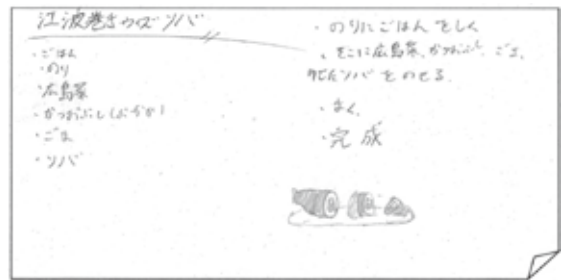 江波巻きウィズソバ
・ごはん
・のり
・広島菜
・かつおぶし(おかか)
・ごま
・ソバ
・のりにごはんをしく
・そこに広島菜、かつおぶし、ごま、
ソバをのせる。
・まく。
・完成